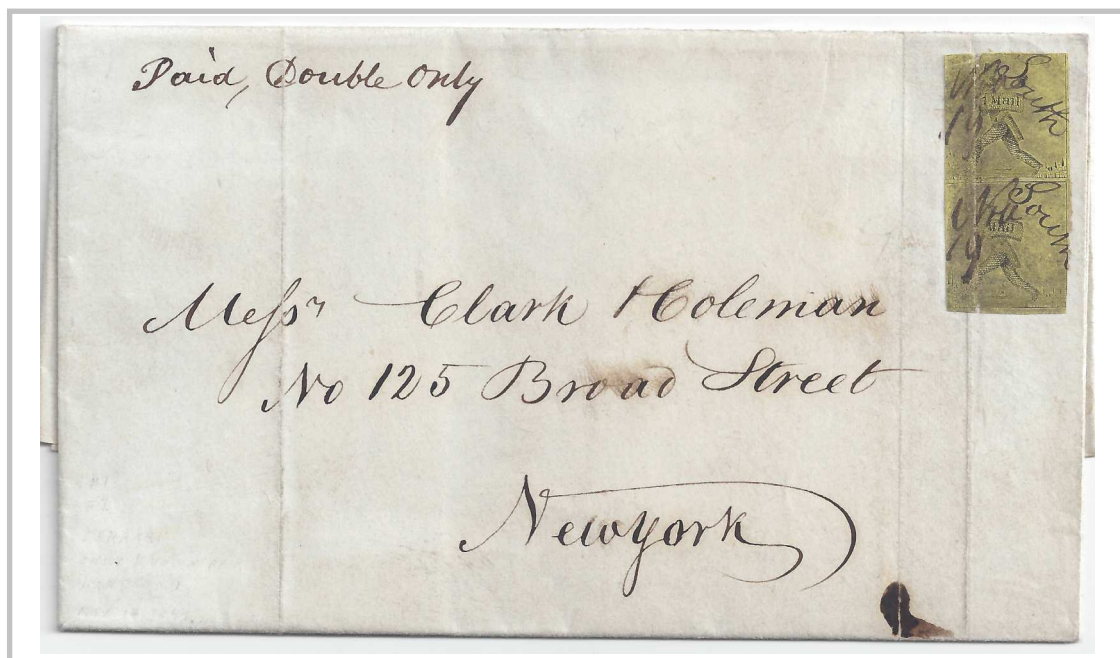 Paid, Double Only
South
Mail
South
19
Mess^rs Clark & Coleman
No 125 Broad Street
New york